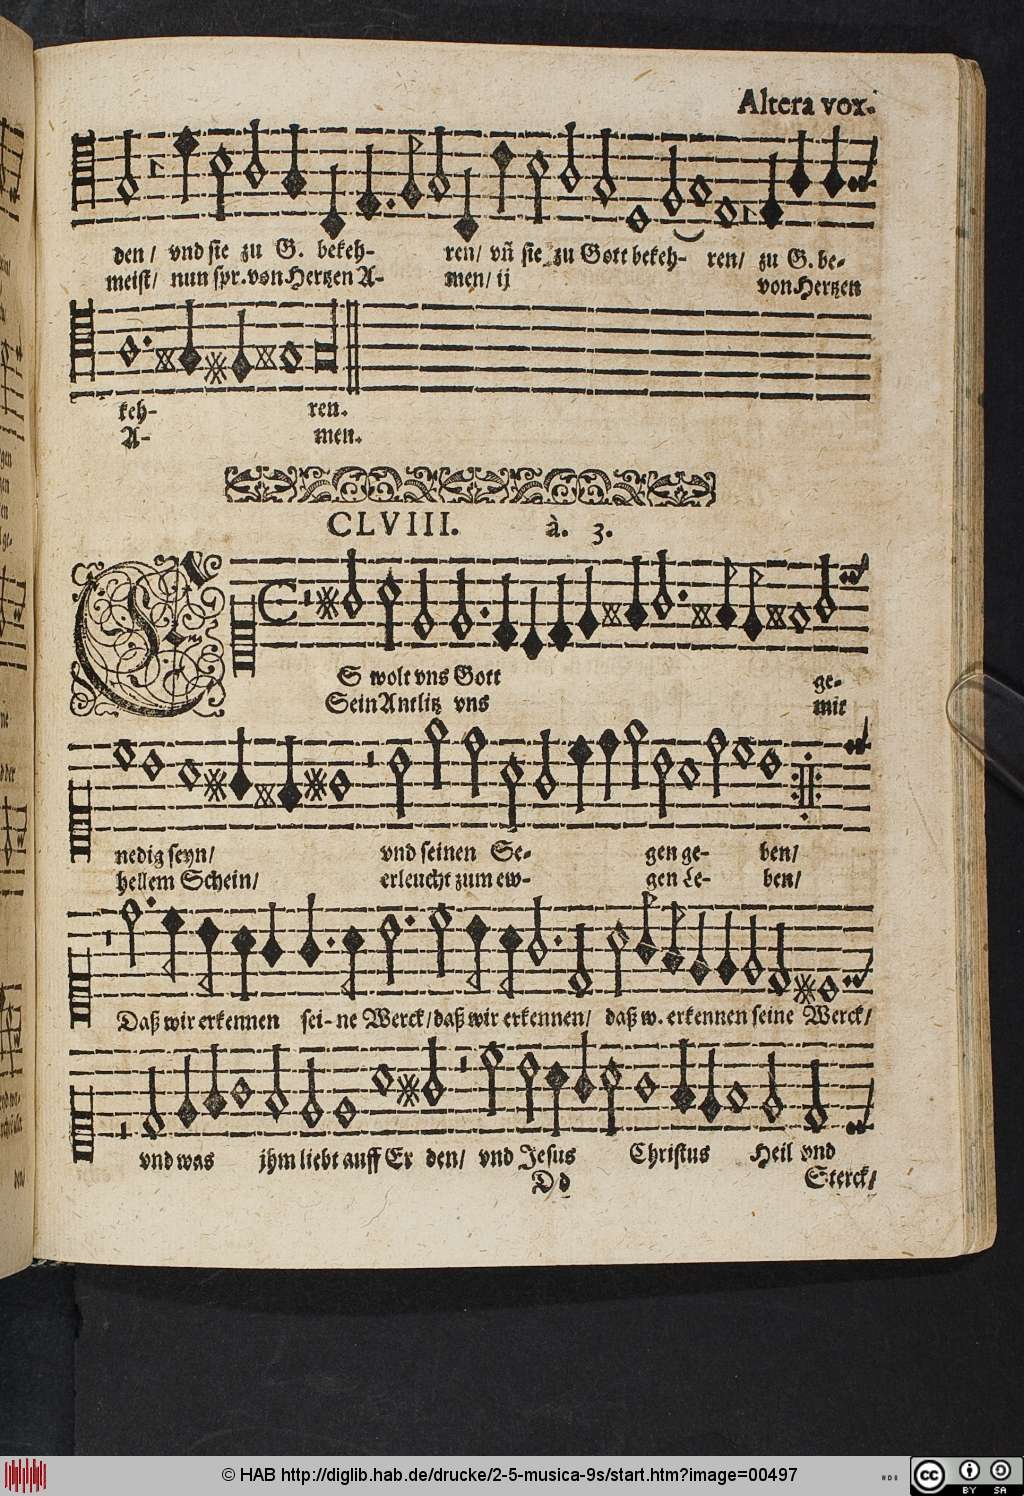 Altera vox.
den/ vnd sie zu G. bekeh- ren/ vñ sie zu Gott bekeh- ren/ zu G. be-
meist/ nun spr. von Hertzen A- men/ ij von Hertzen
keh- ren.
A- men.
CLVIII. à. 3.
ES wolt vns Gott ge-
Sein Antlitz vns mit
nedig seyn/ vnd seinen Se- gen ge- ben/
hellem Schein/ erleucht zum ew- gen Le- ben/
Daß wir erkennen sei- ne Werck/ daß wir erkennen/ daß w. erkennen seine Werck/
vnd was jhm liebt auff Er den/ vnd Jesus Christus Heil vnd
Dd Sterck/
© HAB http://diglib.hab.de/drucke/2-5-musica-9s/start.htm?image=00497
cc BY SA